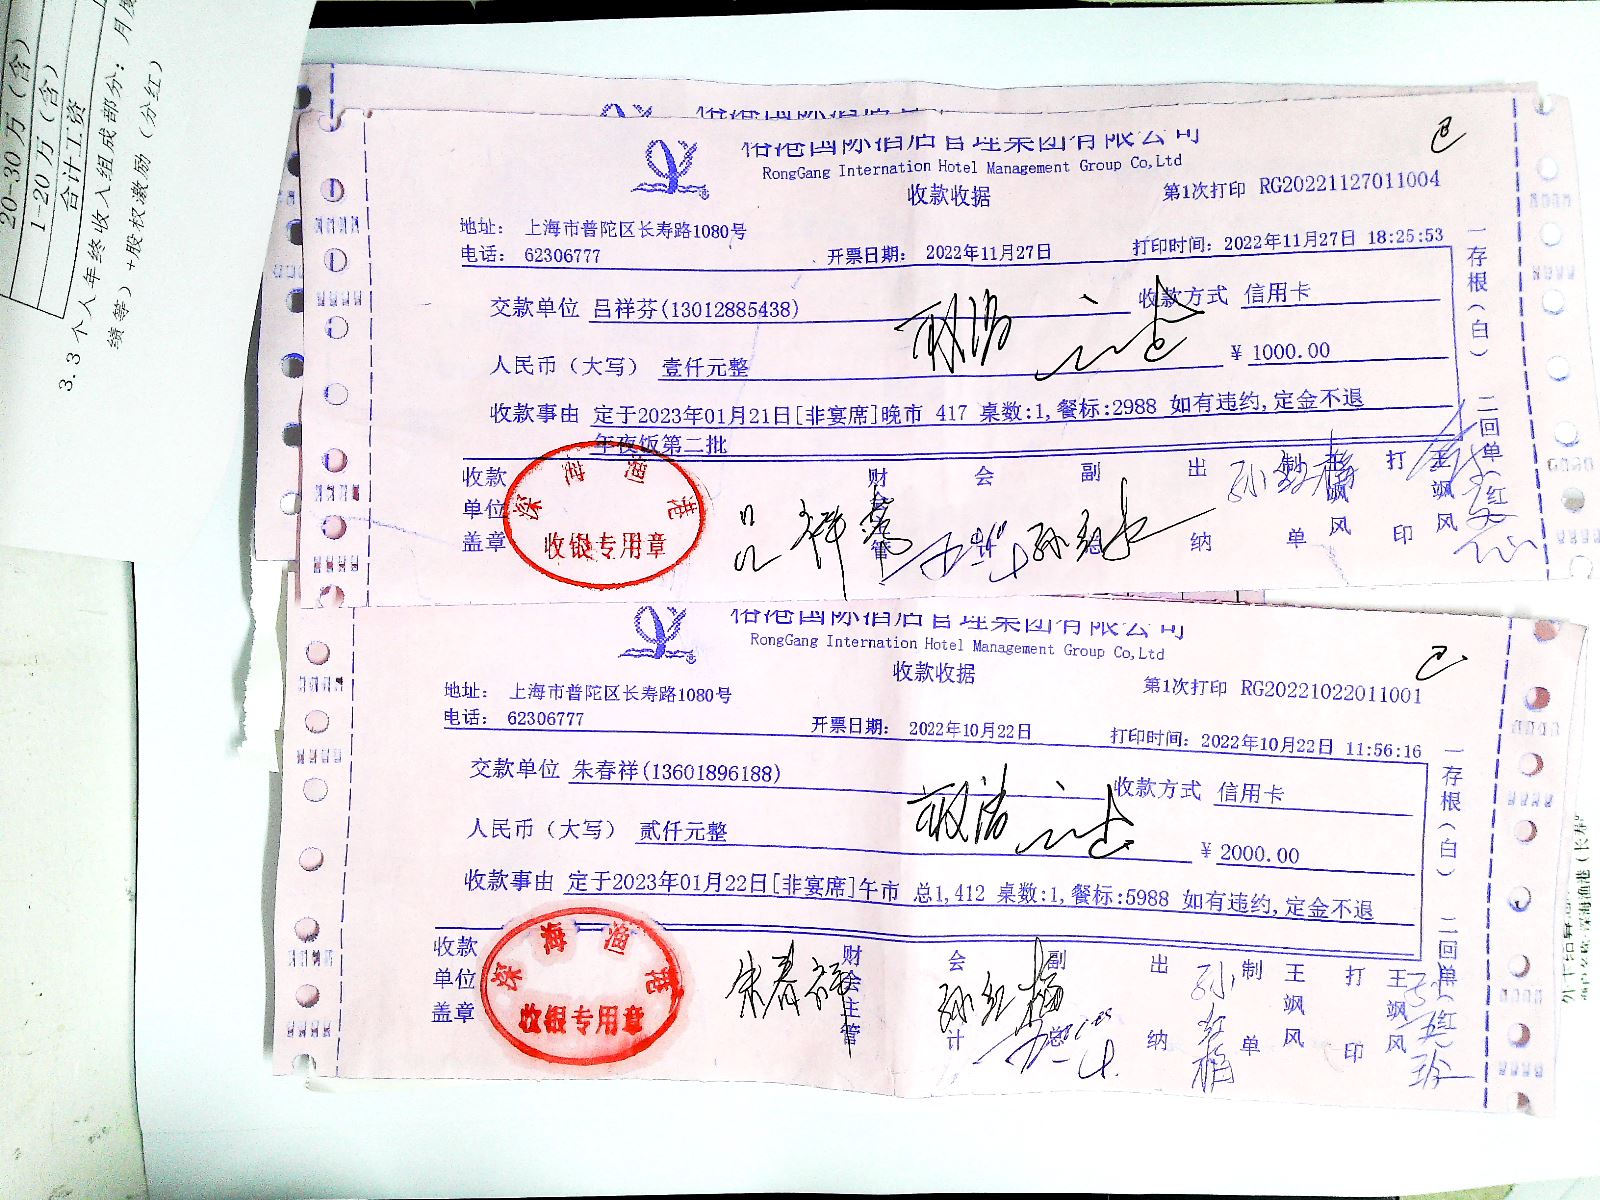 20-30万(含)
1-20万(含)
合计工资
3.3 个人年终收入组成部分：月度
绩等）+股权激励（分红）
裕港国际酒店管理集团有限公司
RongGang Internation Hotel Management Group Co,Ltd
收款收据
第1次打印 RG20221127011004
地址： 上海市普陀区长寿路1080号
电话： 62306777
开票日期： 2022年11月27日
打印时间：2022年11月27日 18:25:53
交款单位 吕祥芬(13012885438)
收款方式 信用卡
人民币（大写） 壹仟元整
¥ 1000.00
收款事由 定于2023年01月21日[非宴席]晚市 417 桌数:1,餐标:2988 如有违约,定金不退
年夜饭第二批
一存根（白） 二回单（红）
收款单位盖章
深海渔港
收银专用章
财会主管
会计
副总
出纳
制单 王飒风
打印 王飒风
裕港国际酒店管理集团有限公司
RongGang Internation Hotel Management Group Co,Ltd
收款收据
第1次打印 RG20221022011001
地址： 上海市普陀区长寿路1080号
电话： 62306777
开票日期： 2022年10月22日
打印时间：2022年10月22日 11:56:16
交款单位 朱春祥(13601896188)
收款方式 信用卡
人民币（大写） 贰仟元整
¥ 2000.00
收款事由 定于2023年01月22日[非宴席]午市 总1,412 桌数:1,餐标:5988 如有违约,定金不退
一存根（白） 二回单（红）
收款单位盖章
深海渔港
收银专用章
朱春祥
财会主管
会计
孙红梅
副总
出纳
孙红梅
制单 王飒风
打印 王飒风